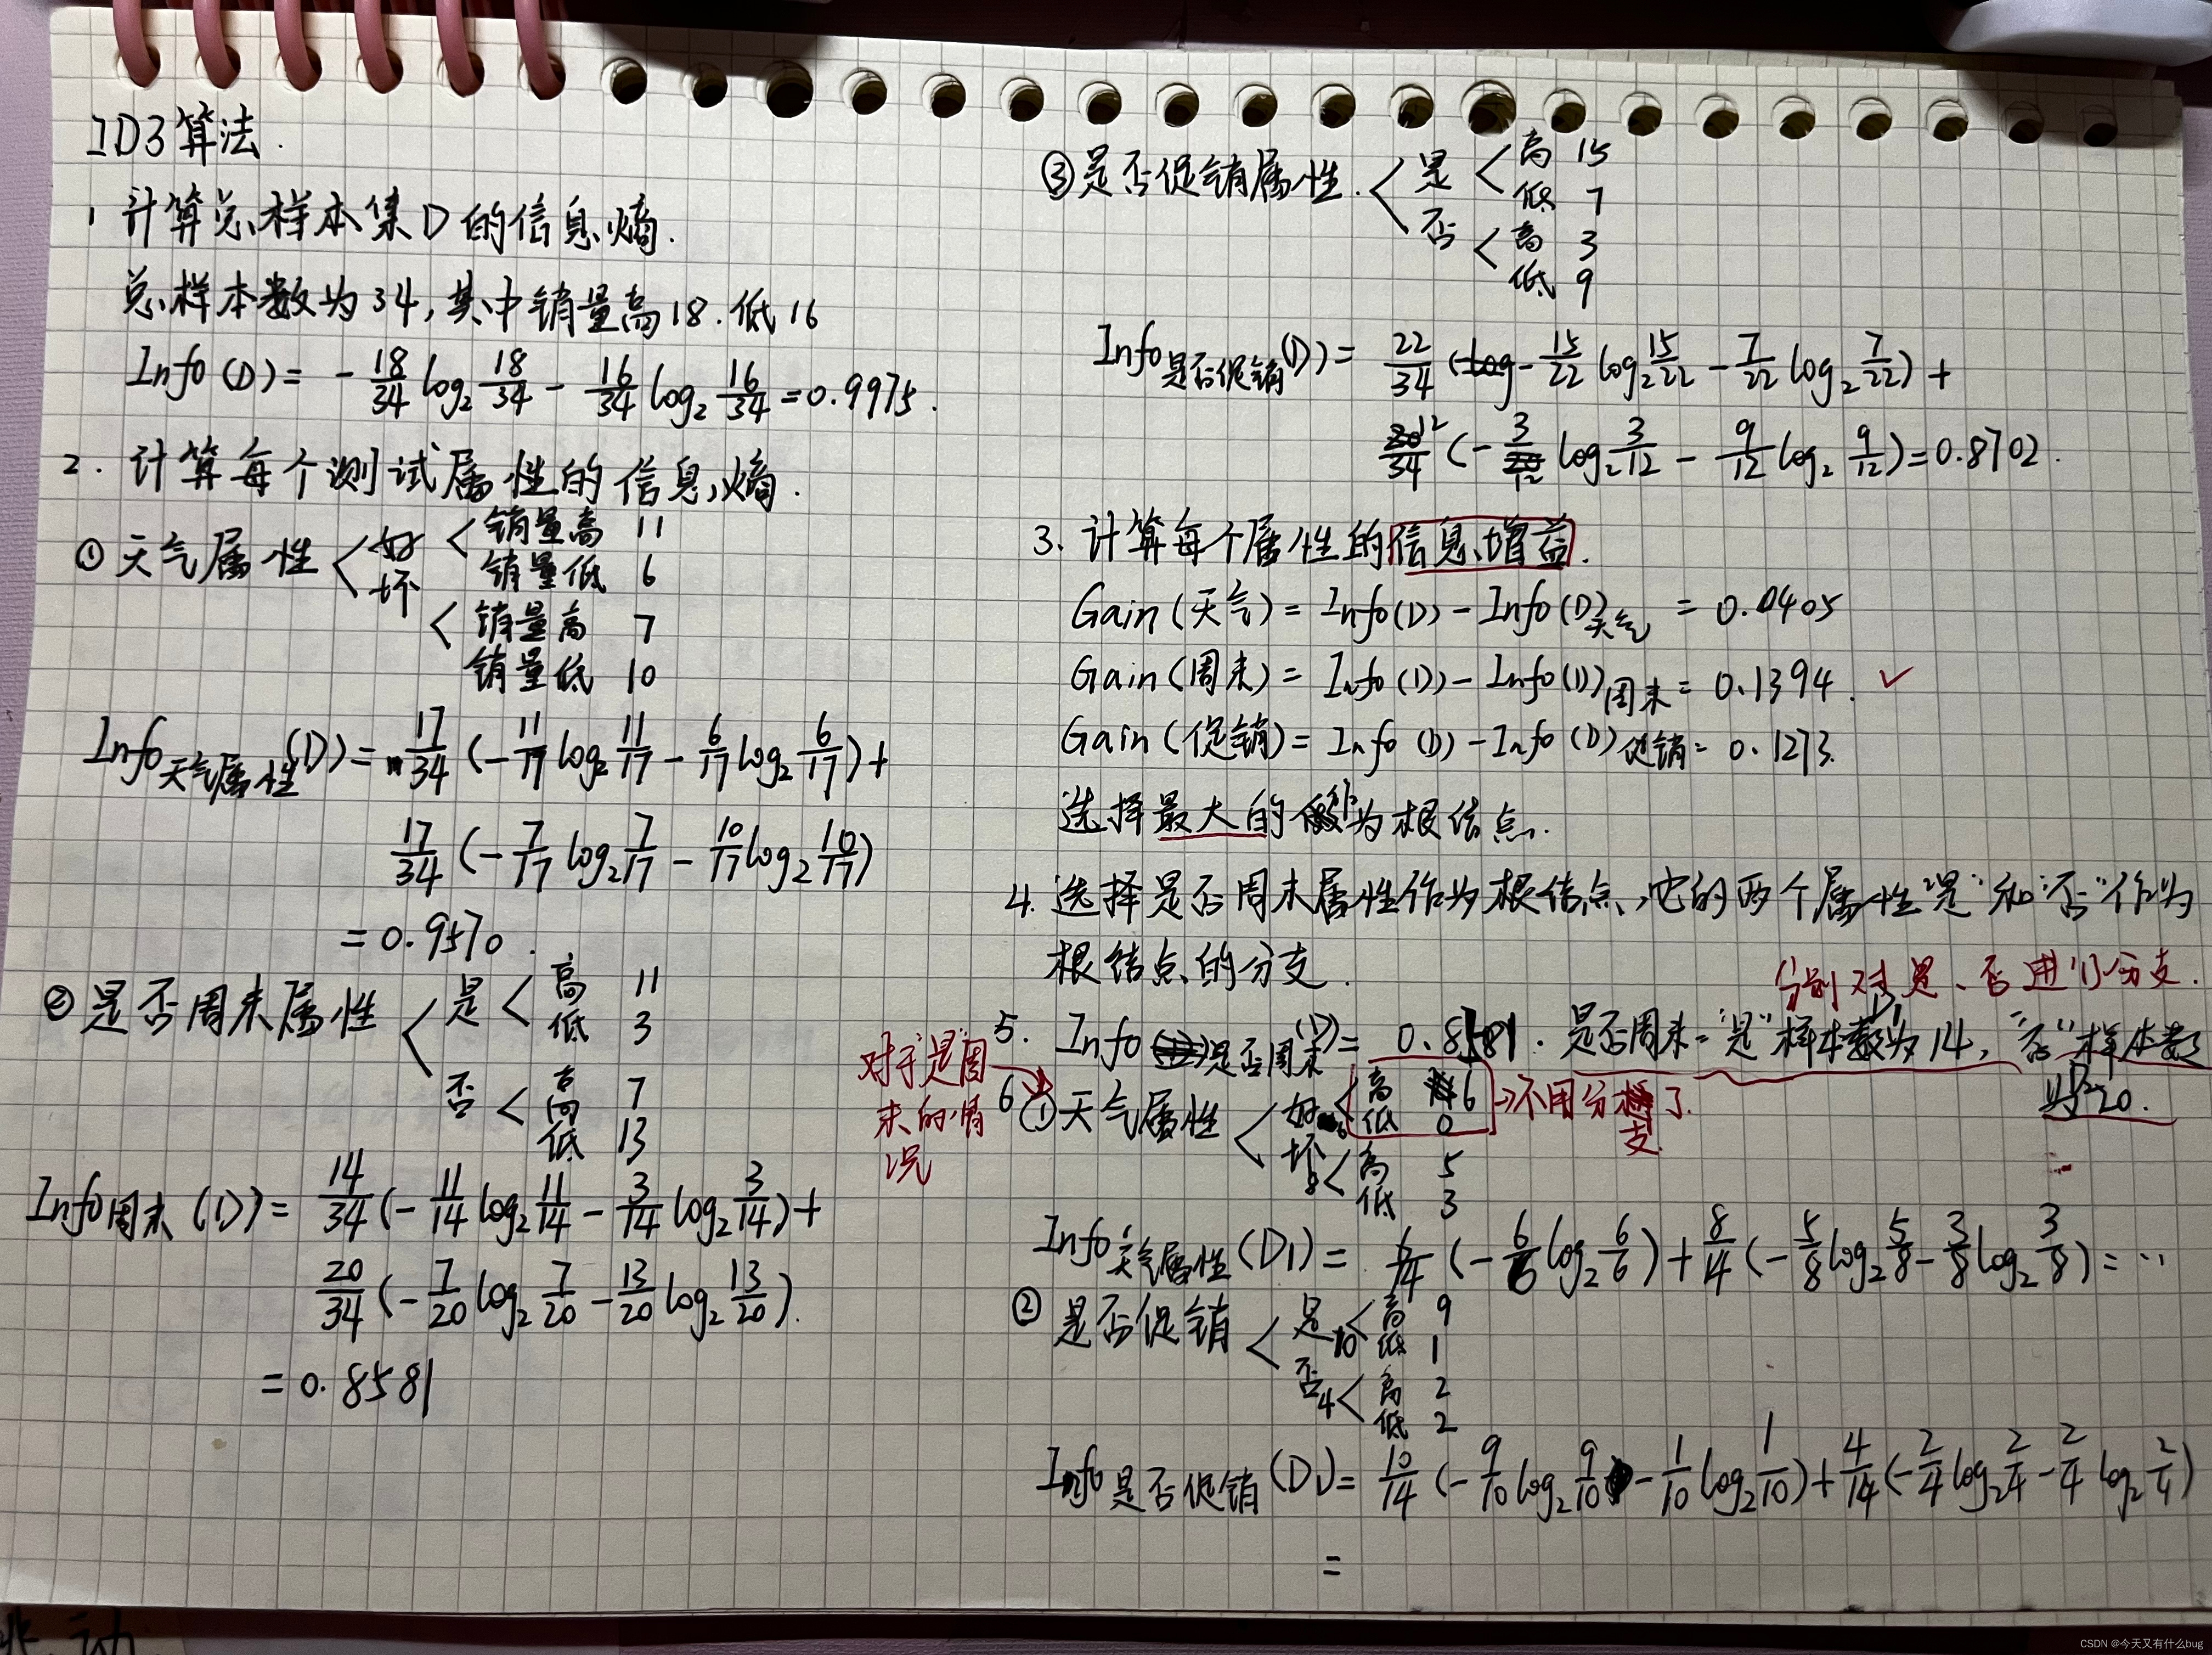 ID3算法.
1 计算总样本集D的信息熵.
总样本数为34,其中销量高18.低16
Info(D)= -18/34 log₂ 18/34 - 16/34 log₂ 16/34 =0.9975.
2. 计算每个测试属性的信息熵.
① 天气属性 < 好 < 销量高 11
销量低 6
坏 < 销量高 7
销量低 10
Info天气属性(D)= 17/34 (-11/17 log₂ 11/17 - 6/17 log₂ 6/17)+
17/34 (-7/17 log₂ 7/17 - 10/17 log₂ 10/17)
=0.9570.
② 是否周末属性 < 是 < 高 11
低 3
否 < 高 7
低 13
Info周末(D)= 14/34 (-11/14 log₂ 11/14 - 3/14 log₂ 3/14)+
20/34 (-7/20 log₂ 7/20 - 13/20 log₂ 13/20).
=0.8581
③是否促销属性. < 是 < 高 15
低 7
否 < 高 3
低 9
Info是否促销(D)= 22/34 (-15/22 log₂ 15/22 - 7/22 log₂ 7/22)+
12/34 (-3/12 log₂ 3/12 - 9/12 log₂ 9/12)=0.8702.
3. 计算每个属性的信息增益.
Gain(天气)= Info(D)-Info(D)天气 = 0.0405
Gain(周末)= Info(D)-Info(D)周末= 0.1394. ✓
Gain(促销)= Info(D)-Info(D)促销= 0.1273.
选择最大的作为根结点.
4. 选择是否周末属性作为根结点,它的两个属性"是"和"否"作为
根结点的分支.
分别对是、否进行分支.
5. Info是否周末(D)= 0.8581. 是否周末="是"样本数为14, "否"样本数
为20.
对于"是"周
末的情
况
6 ①天气属性 < 好6 < 高 6 →不用分支了.
低 0
坏8 < 高 5
低 3
Info天气属性(D1)= 6/14 (-6/6 log₂ 6/6)+ 8/14 (-5/8 log₂ 5/8 - 3/8 log₂ 3/8)=…
② 是否促销 < 是10 < 高 9
低 1
否4 < 高 2
低 2
Info是否促销(D1)= 10/14 (-9/10 log₂ 9/10 - 1/10 log₂ 1/10)+ 4/14 (-2/4 log₂ 2/4 - 2/4 log₂ 2/4)
=
CSDN @今天又有什么bug